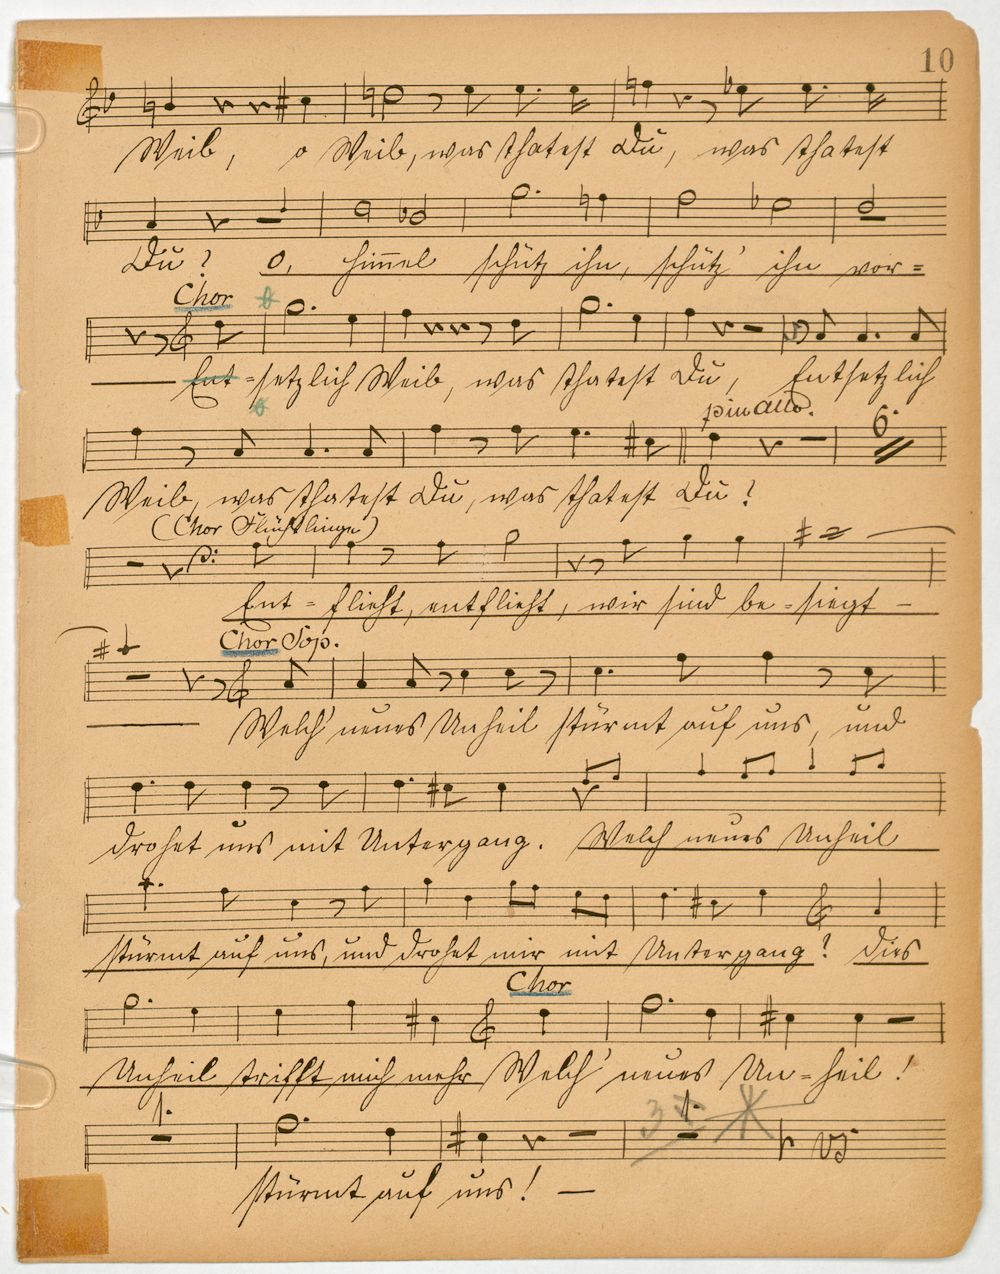 10
Weib, o Weib, was thatest Du, was thatest
Du? O, Himmel schütz ihn, schütz' ihn vor-=
Chor
Ent-=setzlich Weib, was thatest Du, Entsetzlich
più Allo.
6.
Weib, was thatest Du, was thatest Du?
(Chor Flüchtlinge)
Ent-=flieht, entflieht, wir sind be-=siegt —
Chor Sop.
Welch' neues Unheil stürmt auf uns, und
drohet uns mit Untergang. Welch neues Unheil
stürmt auf uns, und drohet mir mit Untergang? Dies
Chor
Unheil trifft mich mehr Welch' neues Un-=heil!
1. 3 1.
stürmt auf uns! —